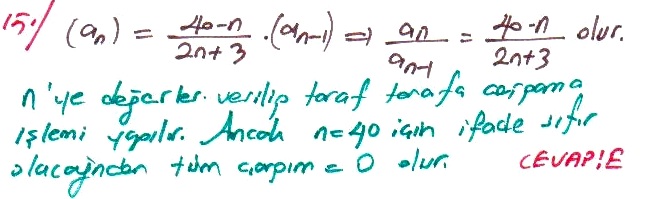 15./ (aₙ) = 40-n / 2n+3 . (aₙ₋₁) ⇒ aₙ / aₙ₋₁ = 40-n / 2n+3 olur.
n'ye değerler verilip taraf tarafa çarpama
işlemi yapılır. Ancak n=40 için ifade sıfır
olacağından tüm çarpım = 0 olur. CEVAP:E